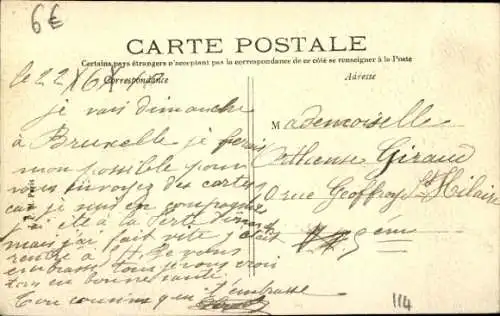 6€
CARTE POSTALE
Certains pays étrangers n'acceptant pas la correspondance de ce côté se renseigner à la Poste
Correspondance
Adresse
le 22
je vais dimanche
à Bruxelle je ferais
mon possible pour
vous envoyez des cartes
car je suis en
j'ai été à la Ferté
mais j'ai fait vite j'étais
rentré à
embrasse tous je vous
en bonne santé
Ton cousin qui t'embrasse
Mademoiselle
Giraud
rue Geoffroy St Hilaire
114